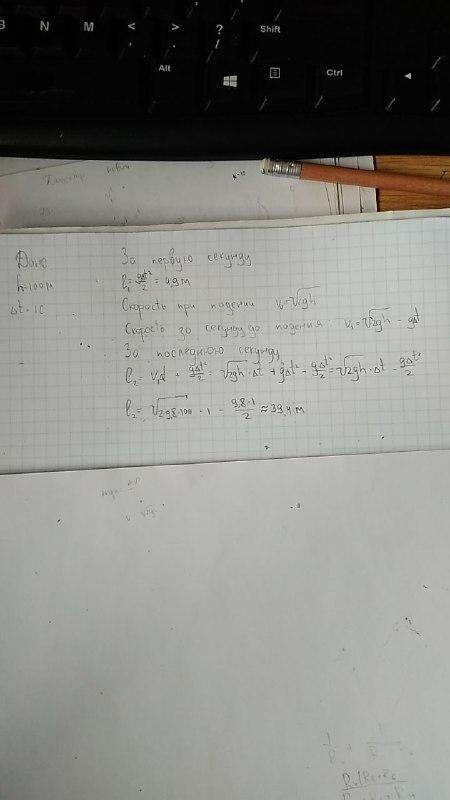 B N M < > ? Shift
, . /
Alt Ctrl
Дано
За первую секунду
h=100м
l₁ = gΔt²/2 = 4,9м
Δt=1с
Скорость при падении v₀=√2gh
Скорость за секунду до падения v₁=√2gh - gΔt
За последнюю секунду
l₂ = v₁Δt + gΔt²/2 = √2gh · Δt + gΔt² - gΔt²/2 = √2gh · Δt - gΔt²/2
l₂ = √2·9,8·100 · 1 - 9,8·1/2 ≈ 39,4м